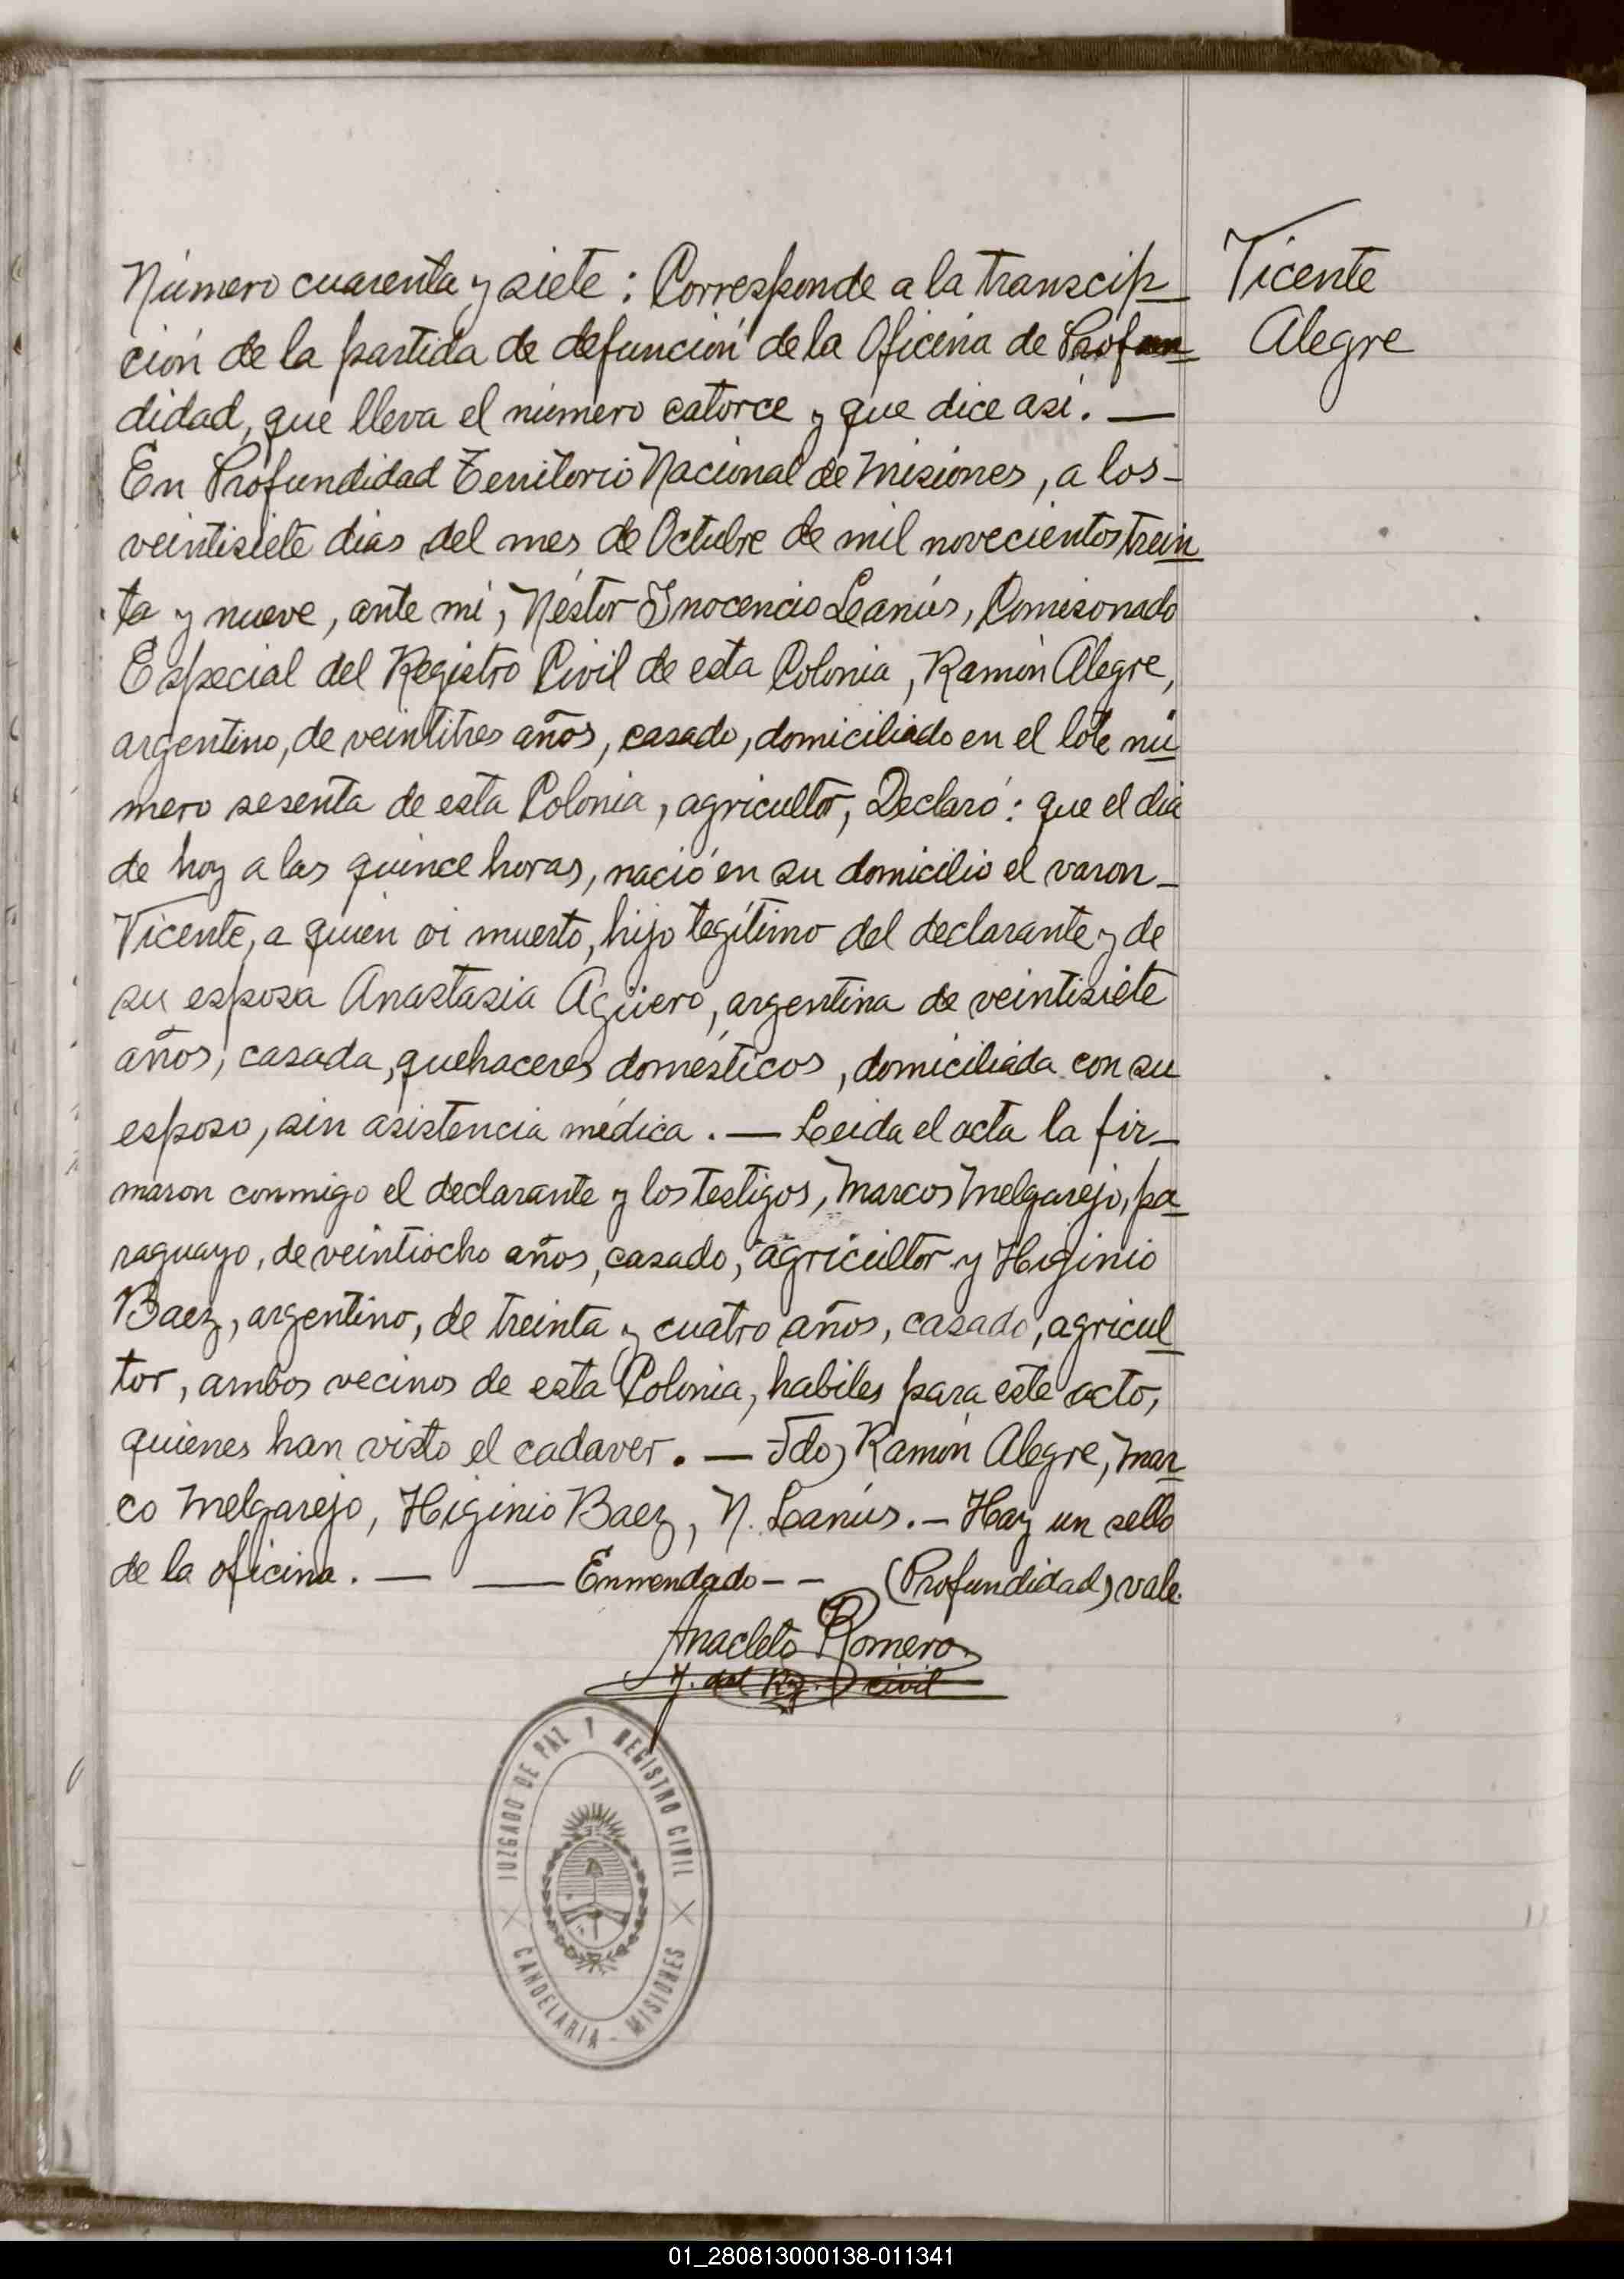 Número cuarenta y siete : Corresponde a la transcip
ción de la partida de defunción de la Oficina de Profun
didad, que lleva el número catorce y que dice asi. —
En Profundidad Territorio Nacional de Misiones, a los -
veintisiete dias del mes de Octubre de mil novecientos trein
ta y nueve, ante mi, Néstor Inocencio Lanús, Comisonado
Especial del Registro Civil de esta Colonia, Ramón Alegre,
argentino, de veintitres años, casado, domiciliado en el lote nú
mero sesenta de esta Colonia, agricultor, Declaró : que el dia
de hoy a las quince horas, nació en su domicilio el varon -
Vicente, a quien vi muerto, hijo legítimo del declarante y de
su esposa Anastasia Agüero, argentina de veintisiete
años, casada, quehaceres domésticos, domiciliada con su
esposo, sin asistencia médica. — Leida el acta la fir-
maron conmigo el declarante y los testigos, Marcos Melgarejo, pa
raguayo, de veintiocho años, casado, agricultor y Higinio
Baez, argentino, de treinta y cuatro años, casado, agricul
tor, ambos vecinos de esta Colonia, habiles para este acto,
quienes han visto el cadaver. — Fdo) Ramón Alegre, Mar
co Melgarejo, Higinio Baez, N. Lanús. - Hay un sello
de la oficina. — — Enmendado - - (Profundidad) vale.
Anacleto Romero
J. del Rg. civil
Vicente
Alegre
JUZGADO DE PAZ Y REGISTRO CIVIL
CANDELARIA - MISIONES
01_280813000138-011341